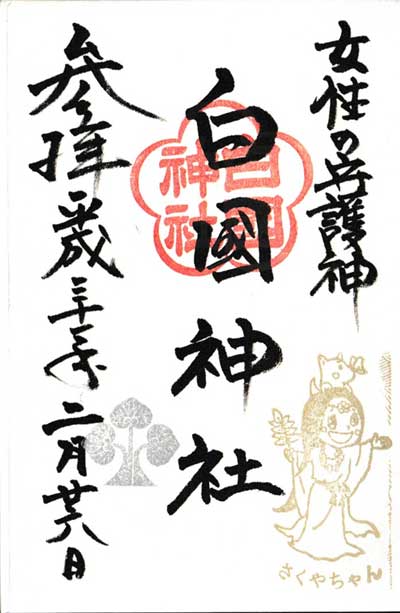 女性の守護神
白國神社
白国
神社
参拝 平成三十年 二月 日
さくやちゃん